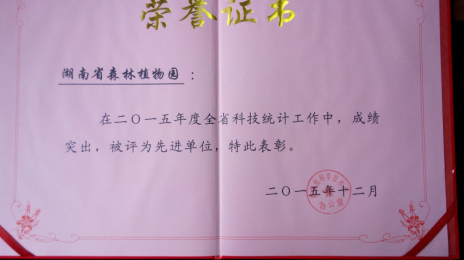 荣誉证书
湖南省森林植物园：
在二〇一五年度全省科技统计工作中，成绩
突出，被评为先进单位，特此表彰。
二〇一五年十二月